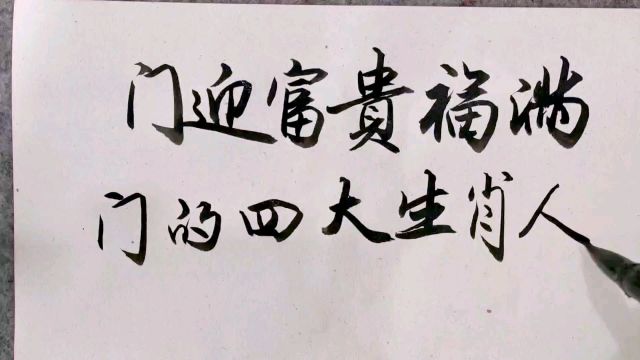 门迎富貴福满
门的四大生肖人